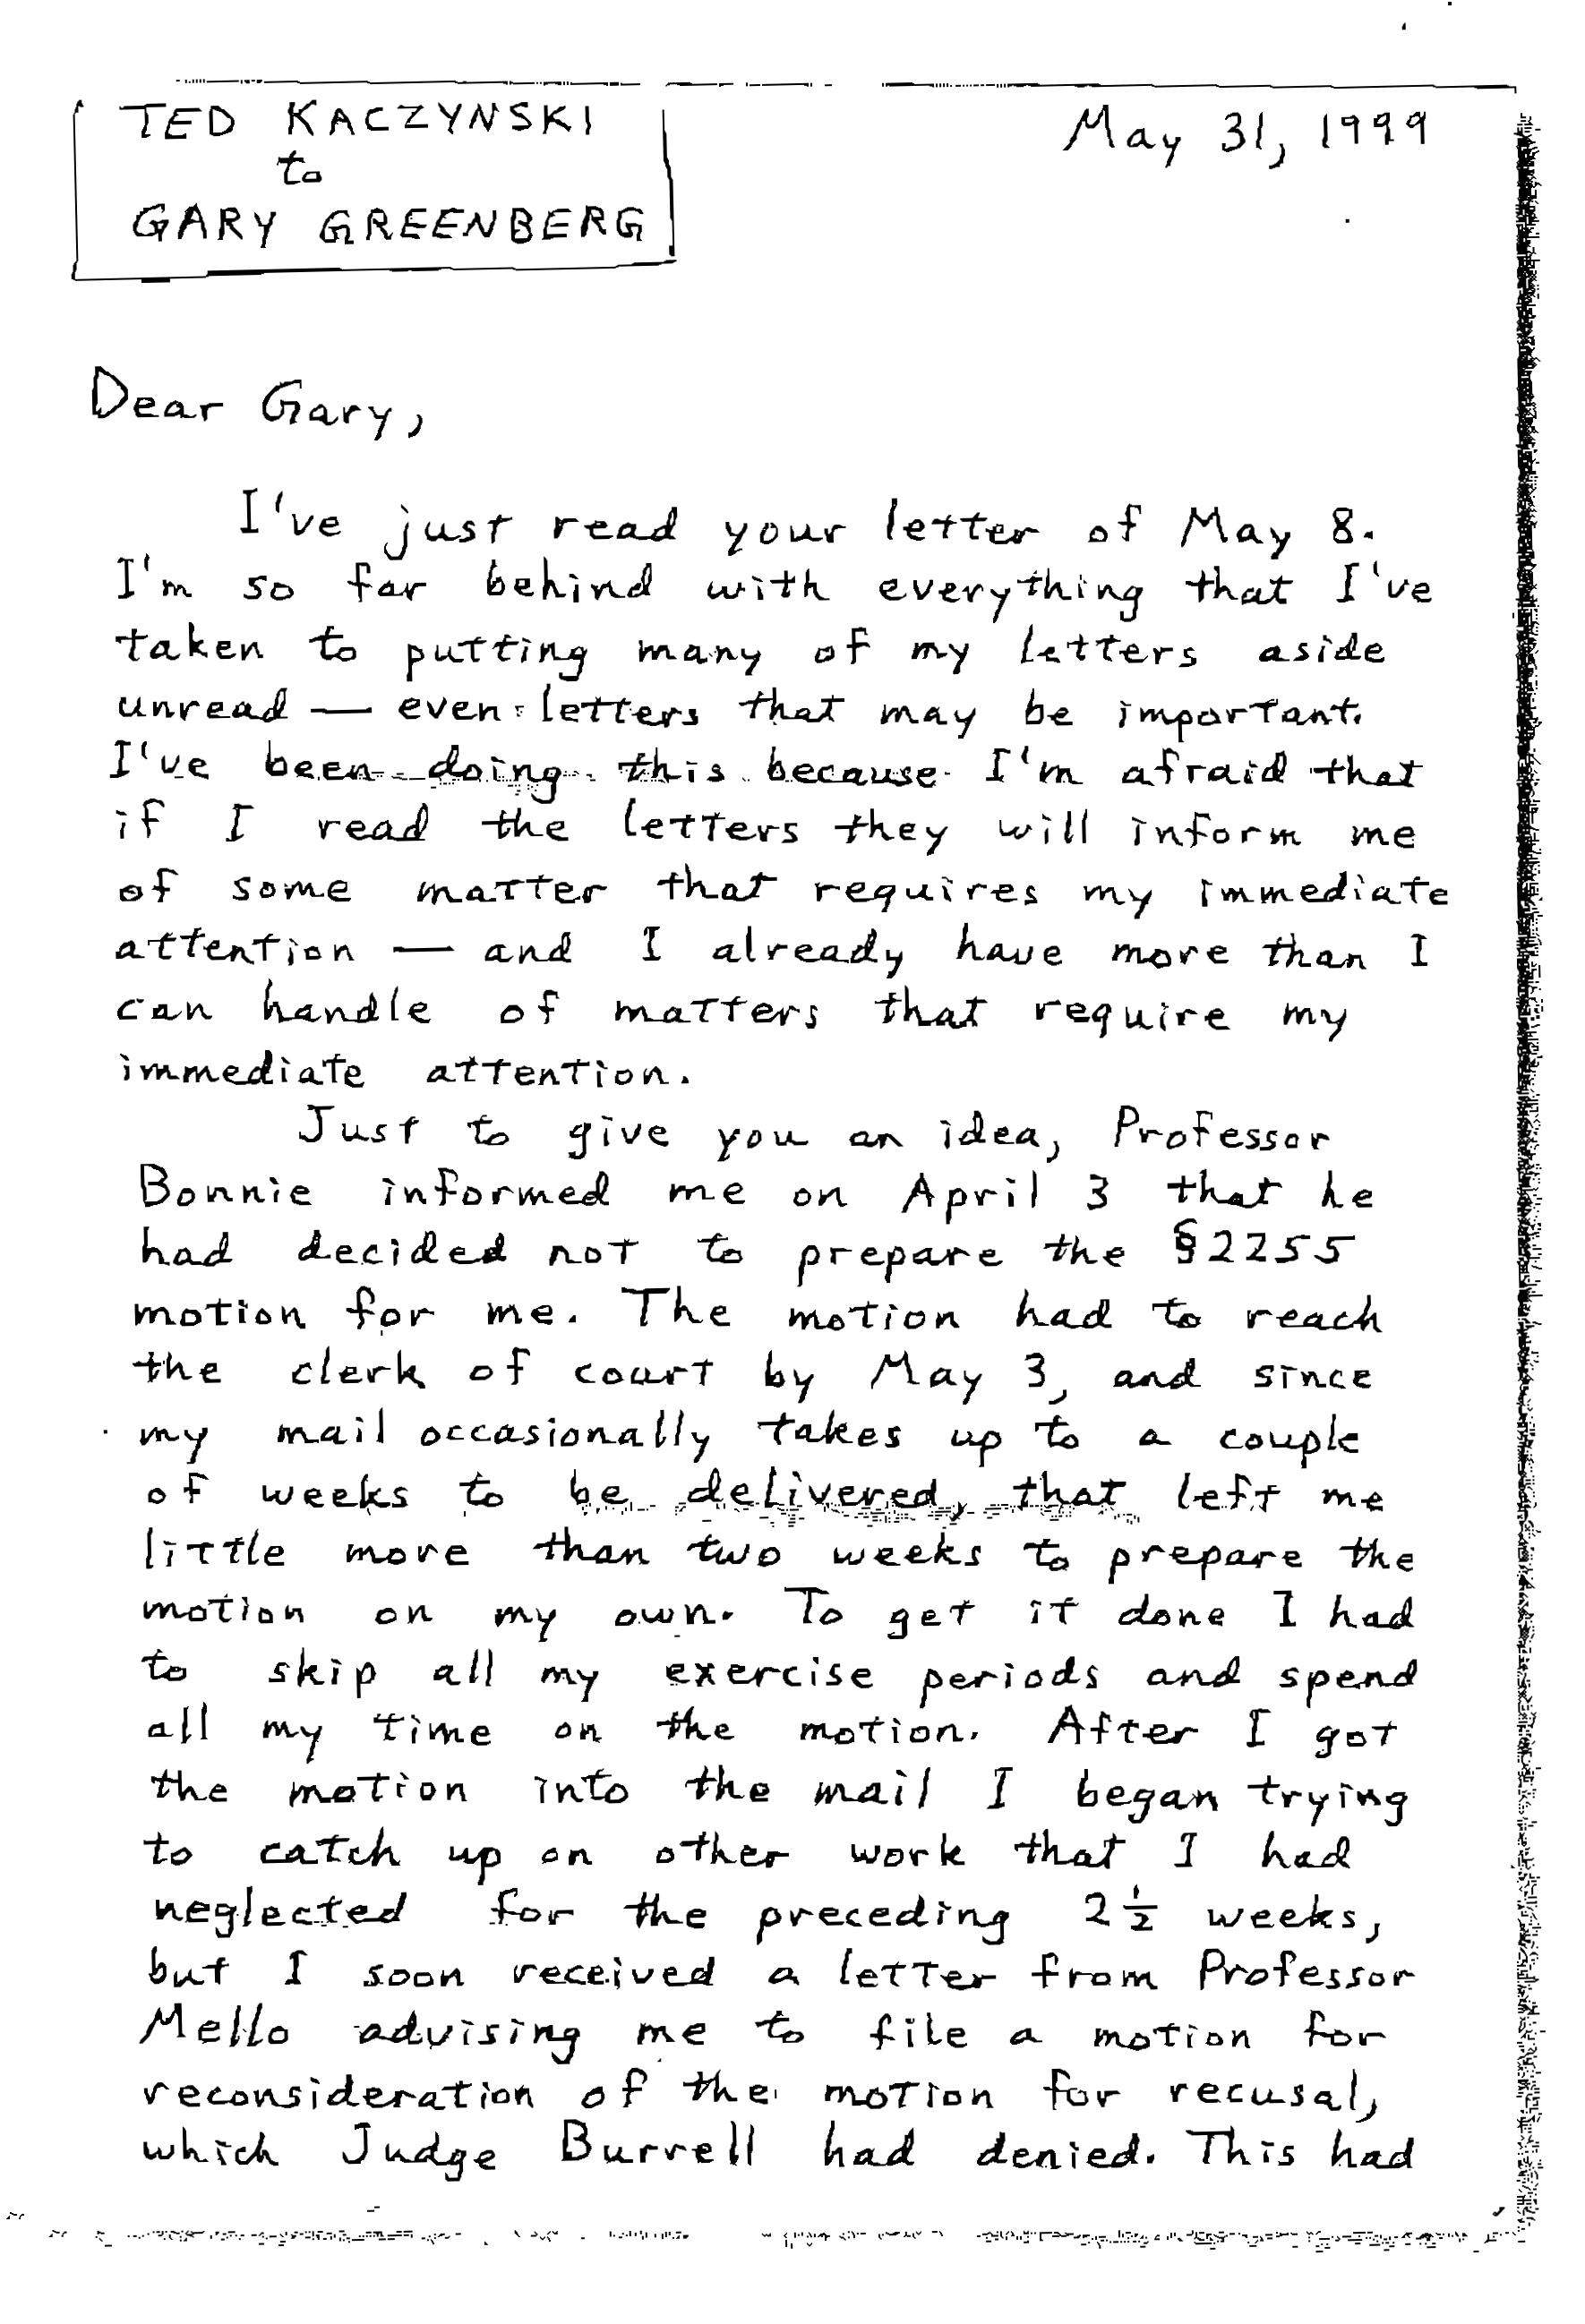 TED KACZYNSKI
to
GARY GREENBERG
May 31, 1999
Dear Gary,
I've just read your letter of May 8.
I'm so far behind with everything that I've
taken to putting many of my letters aside
unread — even letters that may be important.
I've been doing this because I'm afraid that
if I read the letters they will inform me
of some matter that requires my immediate
attention — and I already have more than I
can handle of matters that require my
immediate attention.
Just to give you an idea, Professor
Bonnie informed me on April 3 that he
had decided not to prepare the §2255
motion for me. The motion had to reach
the clerk of court by May 3, and since
my mail occasionally takes up to a couple
of weeks to be delivered, that left me
little more than two weeks to prepare the
motion on my own. To get it done I had
to skip all my exercise periods and spend
all my time on the motion. After I got
the motion into the mail I began trying
to catch up on other work that I had
neglected for the preceding 2½ weeks,
but I soon received a letter from Professor
Mello advising me to file a motion for
reconsideration of the motion for recusal,
which Judge Burrell had denied. This had